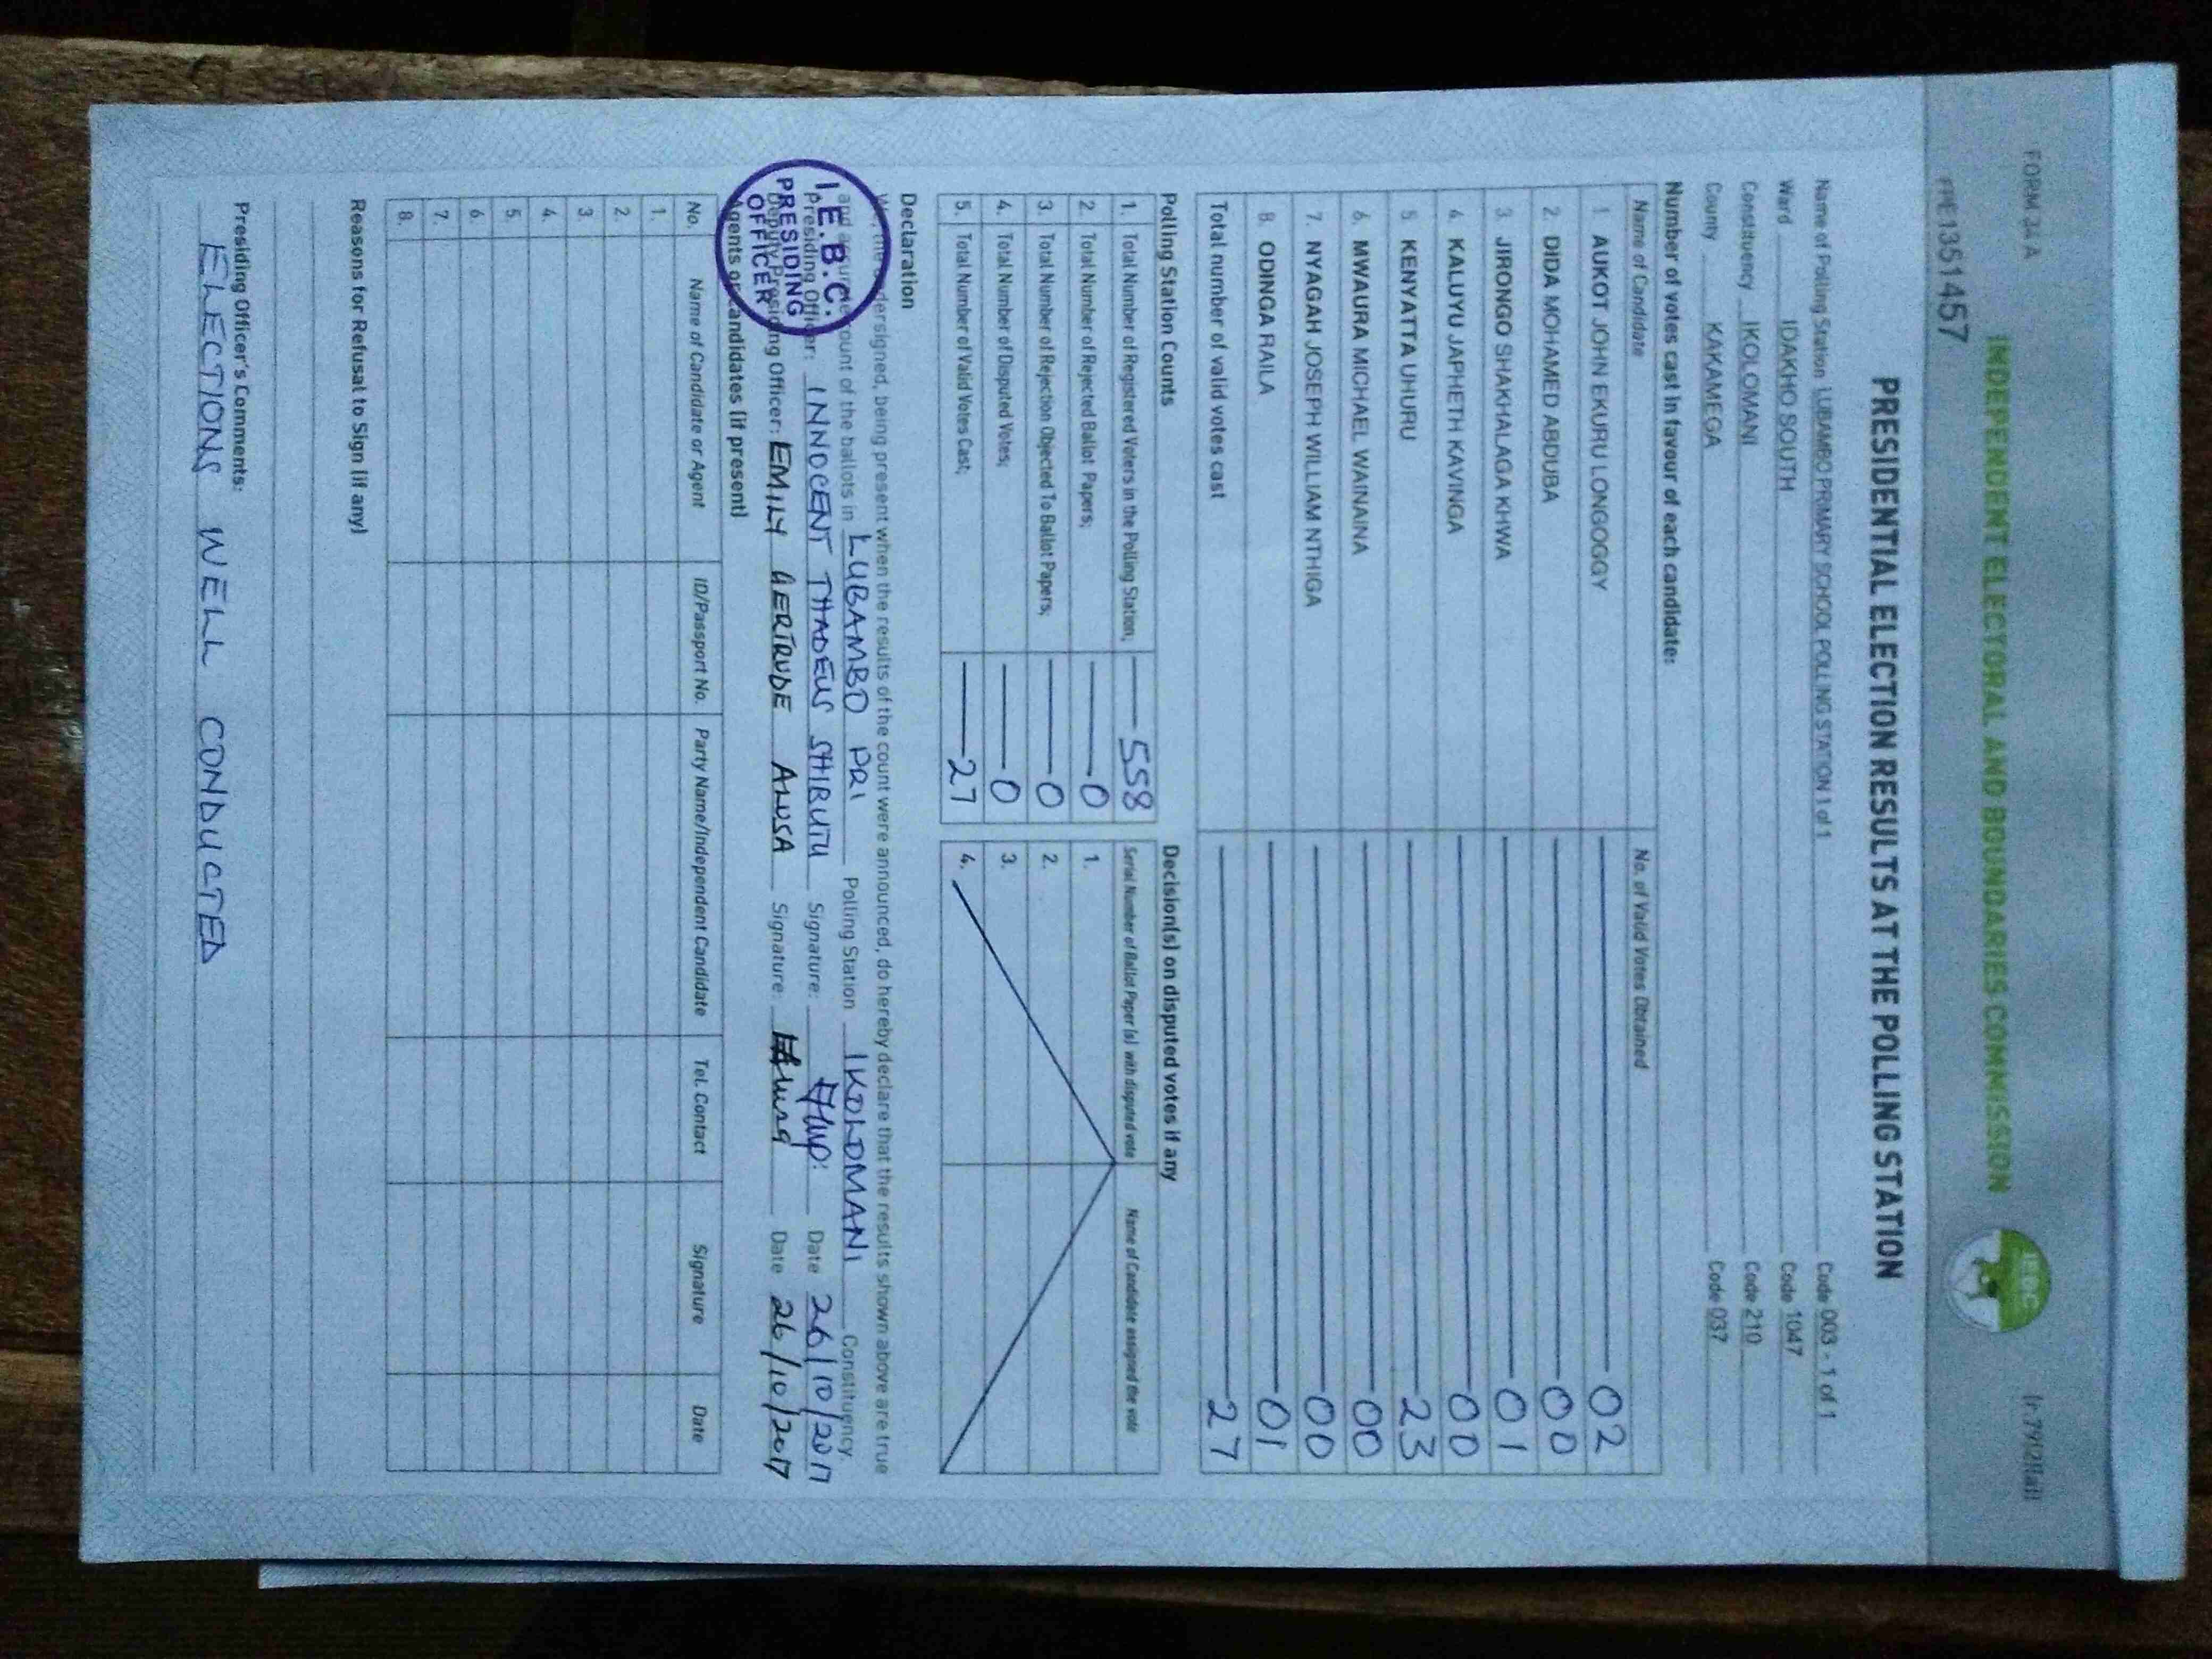 FORM 34 A
INDEPENDENT ELECTORAL AND BOUNDARIES COMMISSION
IEBC
PRESIDENTIAL ELECTION RESULTS AT THE POLLING STATION
Name of Polling Station LUBAMBO PRIMARY SCHOOL POLLING STATION 1 of 1 Code 003 - 1 of 1
Ward IDAKHO SOUTH Code 1047
Constituency IKOLOMANI Code 210
County KAKAMEGA Code 037
Number of votes cast in favour of each candidate:
Name of Candidate No. of Valid Votes Obtained
1 AUKOT JOHN EKURU LONGOGGY 02
2. DIDA MOHAMED ABDUBA 00
3. JIRONGO SHAKHALAGA KHWA 01
4. KALUYU JAPHETH KAVINGA 00
5 KENYATTA UHURU 23
6. MWAURA MICHAEL WAINAINA 00
7. NYAGAH JOSEPH WILLIAM NTHIGA 00
8. ODINGA RAILA 01
Total number of valid votes cast 27
Polling Station Counts
1. Total Number of Registered Voters in the Polling Station; 558
2. Total Number of Rejected Ballot Papers; 0
3. Total Number of Rejection Objected To Ballot Papers; 0
4. Total Number of Disputed Votes; 0
5. Total Number of Valid Votes Cast; 27
Decision(s) on disputed votes if any
Serial Number of Ballot Paper (s) with disputed vote Name of Candidate assigned the vote
1.
2.
3.
4.
Declaration
We, the undersigned, being present when the results of the count were announced, do hereby declare that the results shown above are true
and accurate count of the ballots in LUBAMBO PRI Polling Station IKOLOMANI Constituency.
Presiding Officer: INNOCENT THADEUS SHIRUTU Signature: Date 26/10/2017
Deputy Presiding Officer: EMILY GERTRUDE ALUSA Signature: Date 26/10/2017
I.E.B.C.
PRESIDING
OFFICER
Agents or Candidates (if present)
No. Name of Candidate or Agent ID/Passport No. Party Name/Independent Candidate Tel. Contact Signature Date
1.
2.
3.
4.
5.
6.
7.
8.
Reasons for Refusal to Sign (if any)
Presiding Officer's Comments:
ELECTIONS WELL CONDUCTED